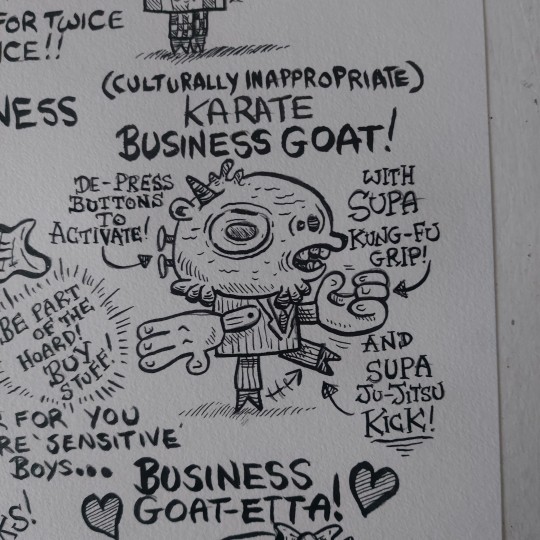 FOR TWICE
ICE!!
NESS
(CULTURALLY INAPPROPRIATE)
KARATE
BUSINESS GOAT!
DE-PRESS
BUTTONS
TO
ACTIVATE!
WITH
SUPA
KUNG-FU
GRIP!
BE PART
OF THE
HOARD!
BUY
STUFF!
AND
SUPA
JU-JITSU
KICK!
FOR YOU
RE 'SENSITIVE'
BOYS...
KS!
BUSINESS
GOAT-ETTA!